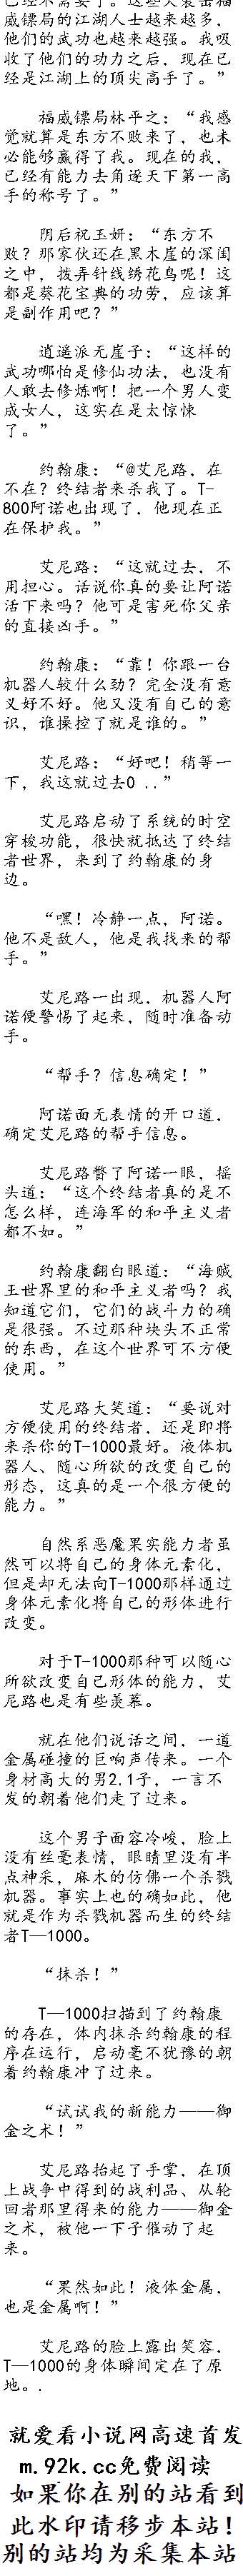 已经不需要了。这些人袭击福
威镖局的江湖人士越来越多，
他们的武功也越来越强。我吸
收了他们的功力之后，现在已
经是江湖上的顶尖高手了。”
福威镖局林平之：“我感
觉就算是东方不败来了，也未
必能够赢得了我。现在的我，
已经有能力去角逐天下第一高
手的称号了。”
阴后祝玉妍：“东方不
败？那家伙还在黑木崖的深闺
之中，拨弄针线绣花鸟呢！这
都是葵花宝典的功劳，应该算
是副作用吧？”
逍遥派无崖子：“这样的
武功哪怕是修仙功法，也没有
人敢去修炼啊！把一个男人变
成女人，这实在是太惊悚
了。”
约翰康：“@艾尼路，在
不在？终结者来杀我了。T-
800阿诺也出现了，他现在正
在保护我。”
艾尼路：“这就过去，不
用担心。话说你真的要让阿诺
活下来吗？他可是害死你父亲
的直接凶手。”
约翰康：“靠！你跟一台
机器人较什么劲？完全没有意
义好不好。他又没有自己的意
识，谁操控了就是谁的。”
艾尼路：“好吧！稍等一
下，我这就过去0 ..”
艾尼路启动了系统的时空
穿梭功能，很快就抵达了终结
者世界，来到了约翰康的身
边。
“嘿！冷静一点，阿诺。
他不是敌人，他是我找来的帮
手。”
艾尼路一出现，机器人阿
诺便警惕了起来，随时准备动
手。
“帮手？信息确定！”
阿诺面无表情的开口道，
确定艾尼路的帮手信息。
艾尼路瞥了阿诺一眼，摇
头道：“这个终结者真的是不
怎么样，连海军的和平主义者
都不如。”
约翰康翻白眼道：“海贼
王世界里的和平主义者吗？我
知道它们，它们的战斗力的确
是很强。不过那种块头不正常
的东西，在这个世界可不方便
使用。”
艾尼路大笑道：“要说对
方便使用的终结者，还是即将
来杀你的T-1000最好。液体机
器人、随心所欲的改变自己的
形态，这真的是一个很方便的
能力。”
自然系恶魔果实能力者虽
然可以将自己的身体元素化，
但是却无法向T-1000那样通过
身体元素化将自己的形体进行
改变。
对于T-1000那种可以随心
所欲改变自己形体的能力，艾
尼路也是有些羡慕。
就在他们说话之间，一道
金属碰撞的巨响声传来。一个
身材高大的男2.1子，一言不
发的朝着他们走了过来。
这个男子面容冷峻，脸上
没有丝毫表情，眼睛里没有半
点神采，麻木的仿佛一个杀戮
机器。事实上也的确如此，他
就是作为杀戮机器而生的终结
者T—1000。
“抹杀！”
T—1000扫描到了约翰康
的存在，体内抹杀约翰康的程
序在运行，启动毫不犹豫的朝
着约翰康冲了过来。
“试试我的新能力——御
金之术！”
艾尼路抬起了手掌，在顶
上战争中得到的战利品、从轮
回者那里得来的能力——御金
之术，被他一下子催动了起
来。
“果然如此！液体金属，
也是金属啊！”
艾尼路的脸上露出笑容，
T—1000的身体瞬间定在了原
地。.
就爱看小说网高速首发
m.92k.cc免费阅读
如果你在别的站看到
此水印请移步本站！
别的站均为采集本站